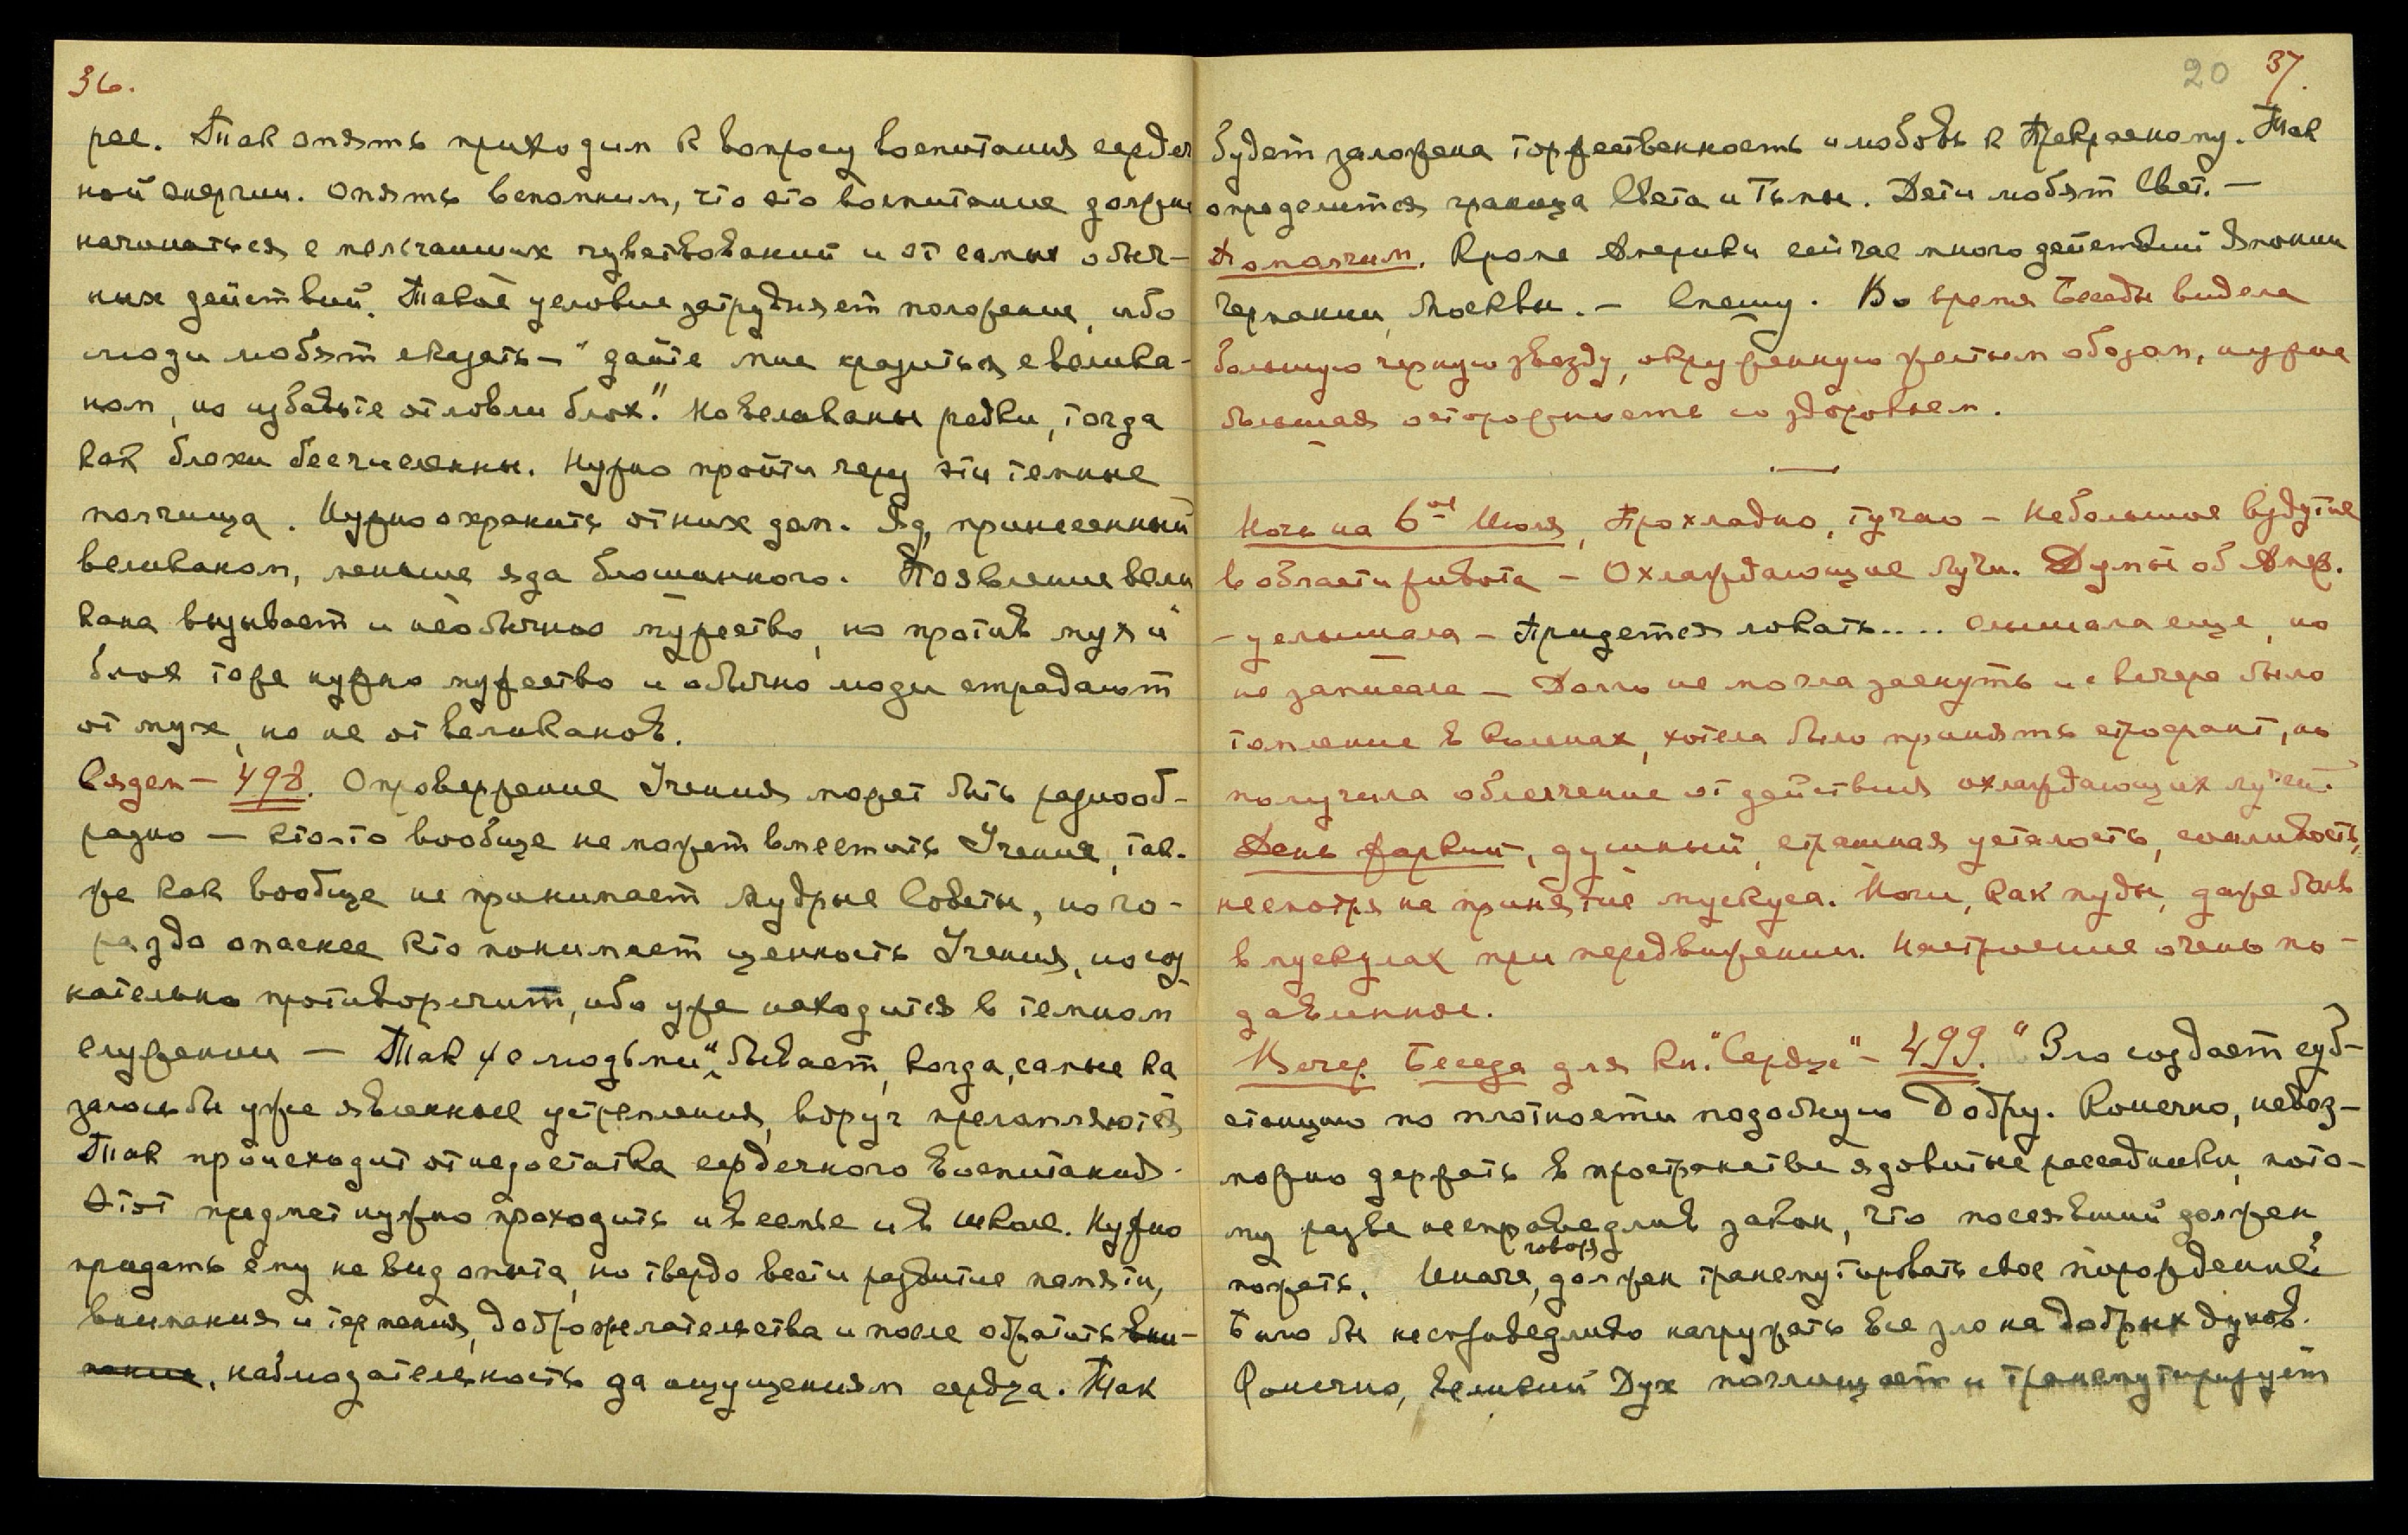 36.
рее. Так опять приходим к вопросу воспитания сердеч
ной энергии. Опять вспомним, что это воспитание должно
начинаться с мельчайших чувствований и от самых обыч-
ных действий. Такое условие затрудняет положение, ибо
люди любят сказать – "дайте мне сразиться с велика-
ном, но избавьте от ловли блох." Но великаны редки, тогда
как блохи бесчисленны. Нужно пройти через эти темные
полчища. Нужно охранить от них дом. Яд, принесенный
великаном, меньше яда блошиного. Появление вели
кана вызывает и необычное мужество, но против мух и
блох тоже нужно мужество и обычно люди страдают
от мух, но не от великанов.
Сядем – 498. Опровержение Учения может быть разнооб-
разно – кто-то вообще не может вместить Учения, так-
же как вообще не принимает мудрые Советы, но го-
раздо опаснее кто понимает ценность Учения, но соз
нательно противоречит, ибо уже находится в темном
служении – Так и с людьми бывает, когда, самые ка
залось бы уже явленные устремления, вдруг преломляются
Так происходит от недостатка сердечного воспитания.
Этот предмет нужно проходить и в семье и в школе. Нужно
придать ему не вид опыта, но твердо вести развитие памяти,
внимания и терпения, доброжелательства и после обратить вни-
мание, наблюдательность да ощущениям сердца. Так
20 37.
будет заложена торжественность и любовь к Прекрасному. Так
определится граница Света и Тьмы. Дети любят Свет. –
Помолчим. Кроме Америки сейчас много действий Японии
Германии, Москвы. – Спешу. Во время Беседы видела
большую черную звезду, окруженную желтым ободом, нужна
большая осторожность со здоровьем.
Ночь на 6ое Июля, Прохладно, тучно – Небольшое вздутие
в области живота – Охлаждающие лучи. Думы об Амер.
– услышала – Придется ловать.... слышала еще, но
не записала – Долго не могла заснуть и с вечера было
томление в коленах, хотела было принять строфант, но
получила облегчение от действия охлаждающих лучей.
День жаркий, душный, страшная усталость, сонливость,
несмотря на принятие мускуса. Ноги, как пуды, даже боль
в мускулах при передвижении. Настроение очень по-
давленное.
Вечер. Беседа для кн. "Сердце" – 499. "Зло создает суб-
станцию по плотности подобную Добру. Конечно, невоз-
можно держать в пространстве ядовитые рассадники, пото-
му разве несправедлив закон, что посеявший должен
пожать. Иначе говоря, должен трансмутировать свое порождение?
Было бы несправедливо нагружать все зло на добрых духов.
Конечно, Великий Дух поглощает и трансмутирует